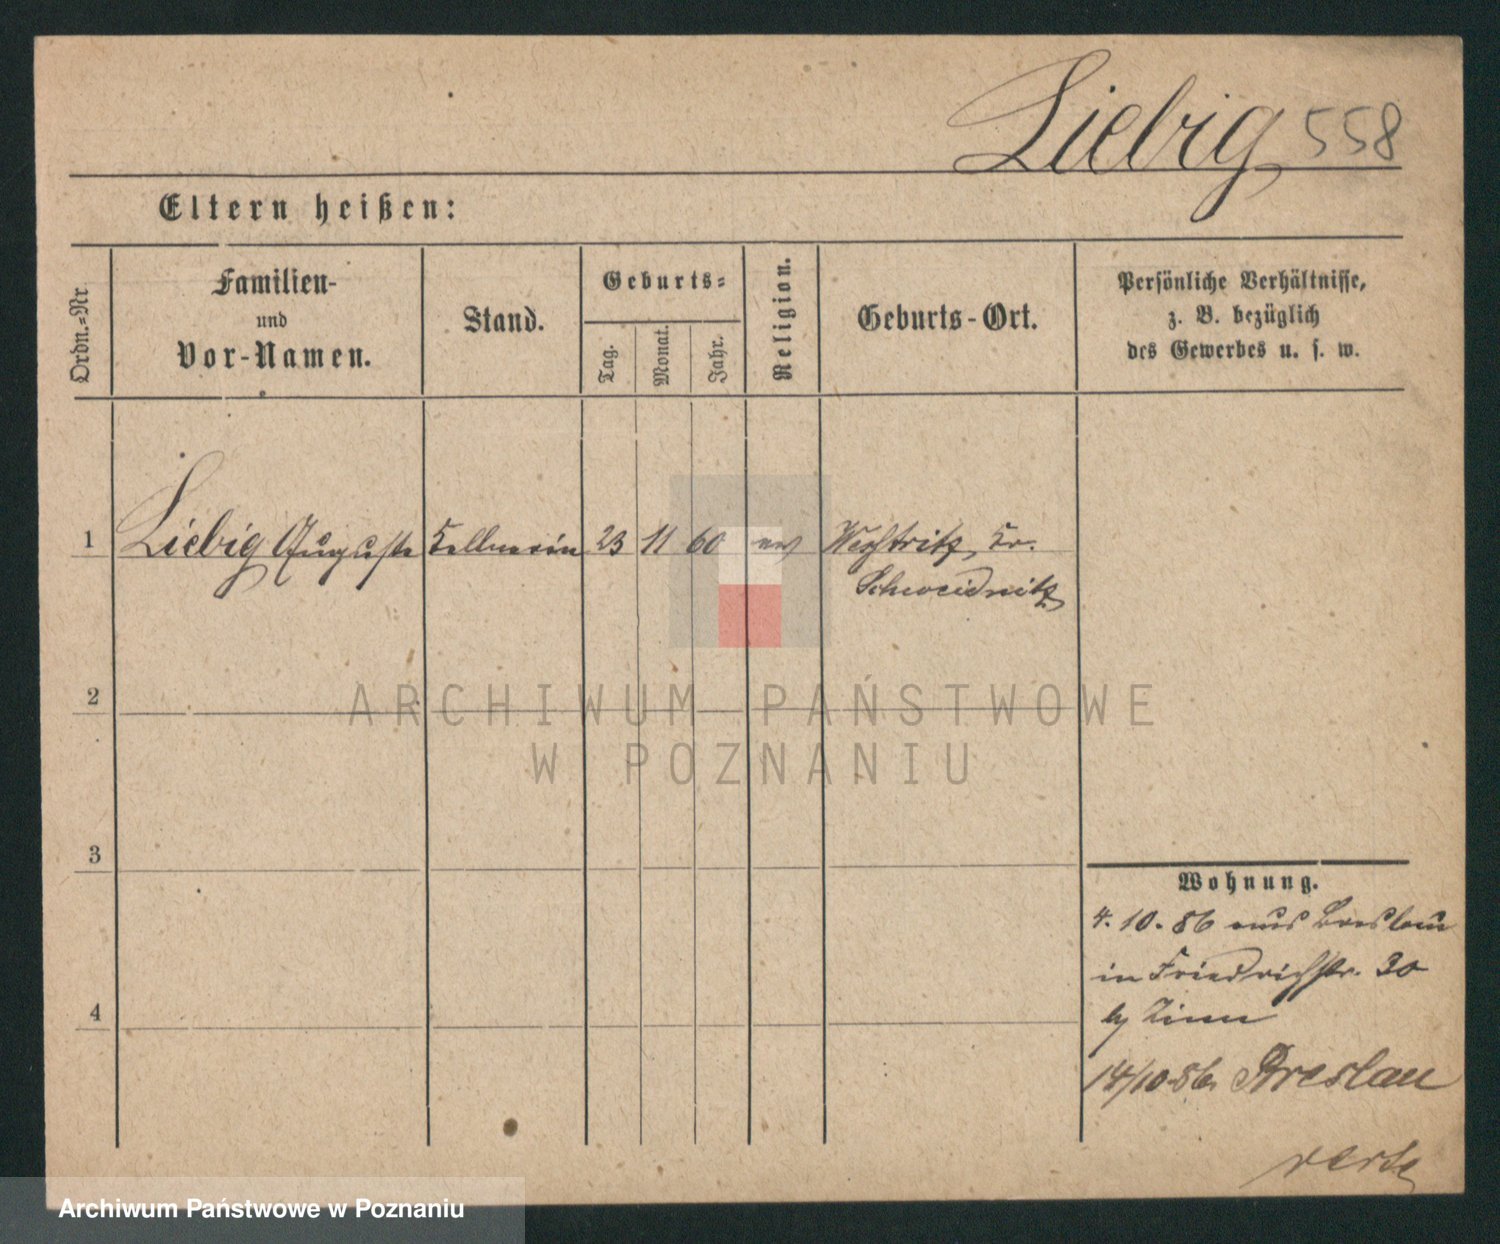 Liebig 558
Eltern heißen:
Ordn.=Nr.
Familien-
und
Vor-Namen.
Stand.
Geburts=
Tag.
Monat.
Jahr.
Religion.
Geburts-Ort.
Persönliche Verhältnisse,
z. B. bezüglich
des Gewerbes u. s. w.
1 Liebig Auguste Kellnerin 23 11 60 ev Weistritz, Kr.
Schweidnitz
2
ARCHIWUM PAŃSTWOWE
W POZNANIU
3
Wohnung.
4. 10. 86 aus Breslau
in Friedrichstr. 30
4
by Zinn
14/10 86. Breslau
verte
Archiwum Państwowe w Poznaniu